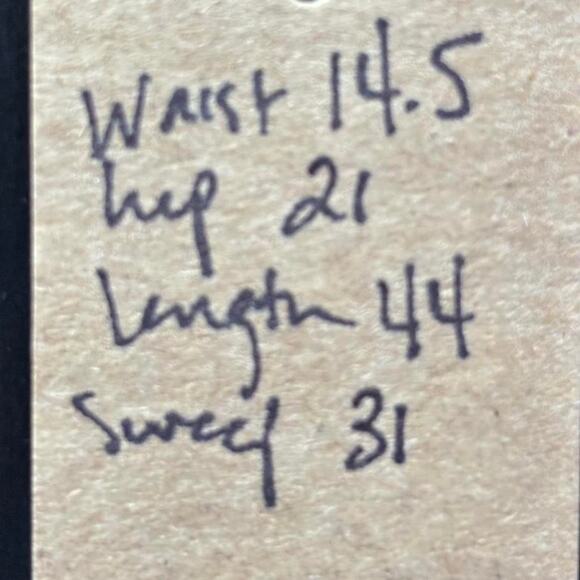 Waist 14.5
hip 21
Length 44
Sweep 31